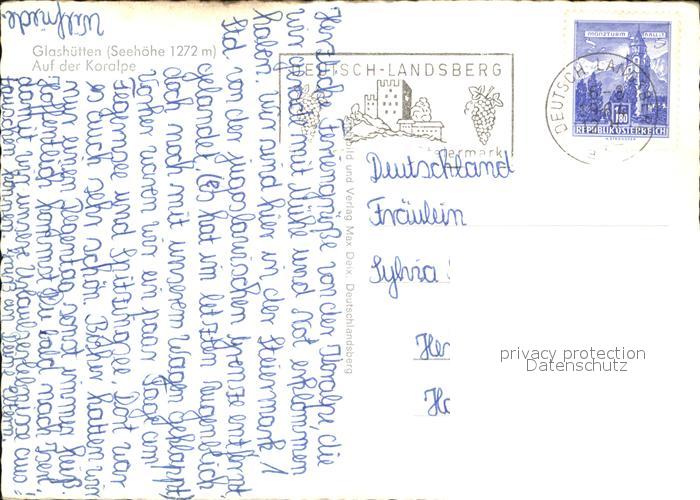 Glashütten (Seehöhe 1272 m)
Auf der Koralpe
DEUTSCH-LANDSBERG
MÜNZTURM HALL I/T
1.80
REPUBLIK ÖSTERREICH
DEUTSCH-LANDSB
Bild und Verlag Max Deix, Deutschlandsberg
Deutschland
Fräulein
Sylvia
He
H
privacy protection
Datenschutz
Herzliche Feriengrüße von der Koralpe, die
wir gerade mit Mühe und Not erklommen
haben. Wir sind hier in der Steiermark 1
Std. von der jugoslawischen Grenze entfernt
gelandet. (Es hat im letzten Augenblich
doch noch mit unserem Wagen geklappt)
Vorher waren wir ein paar Tage am
und Dort war
es auch sehr schön. Bisher hatten wir
nur einen Regentag, sonst immer heiß.
Hoffentlich kommst Du bald nach
damit wir unsere Urlaubserlebnisse aus-
tauschen können.
Wilfriede.